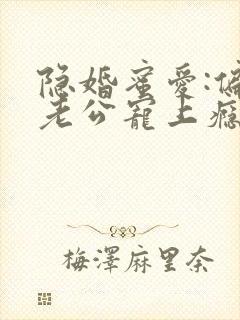 隐婚蜜爱:偏
老公寵上癮
梅澤麻里奈